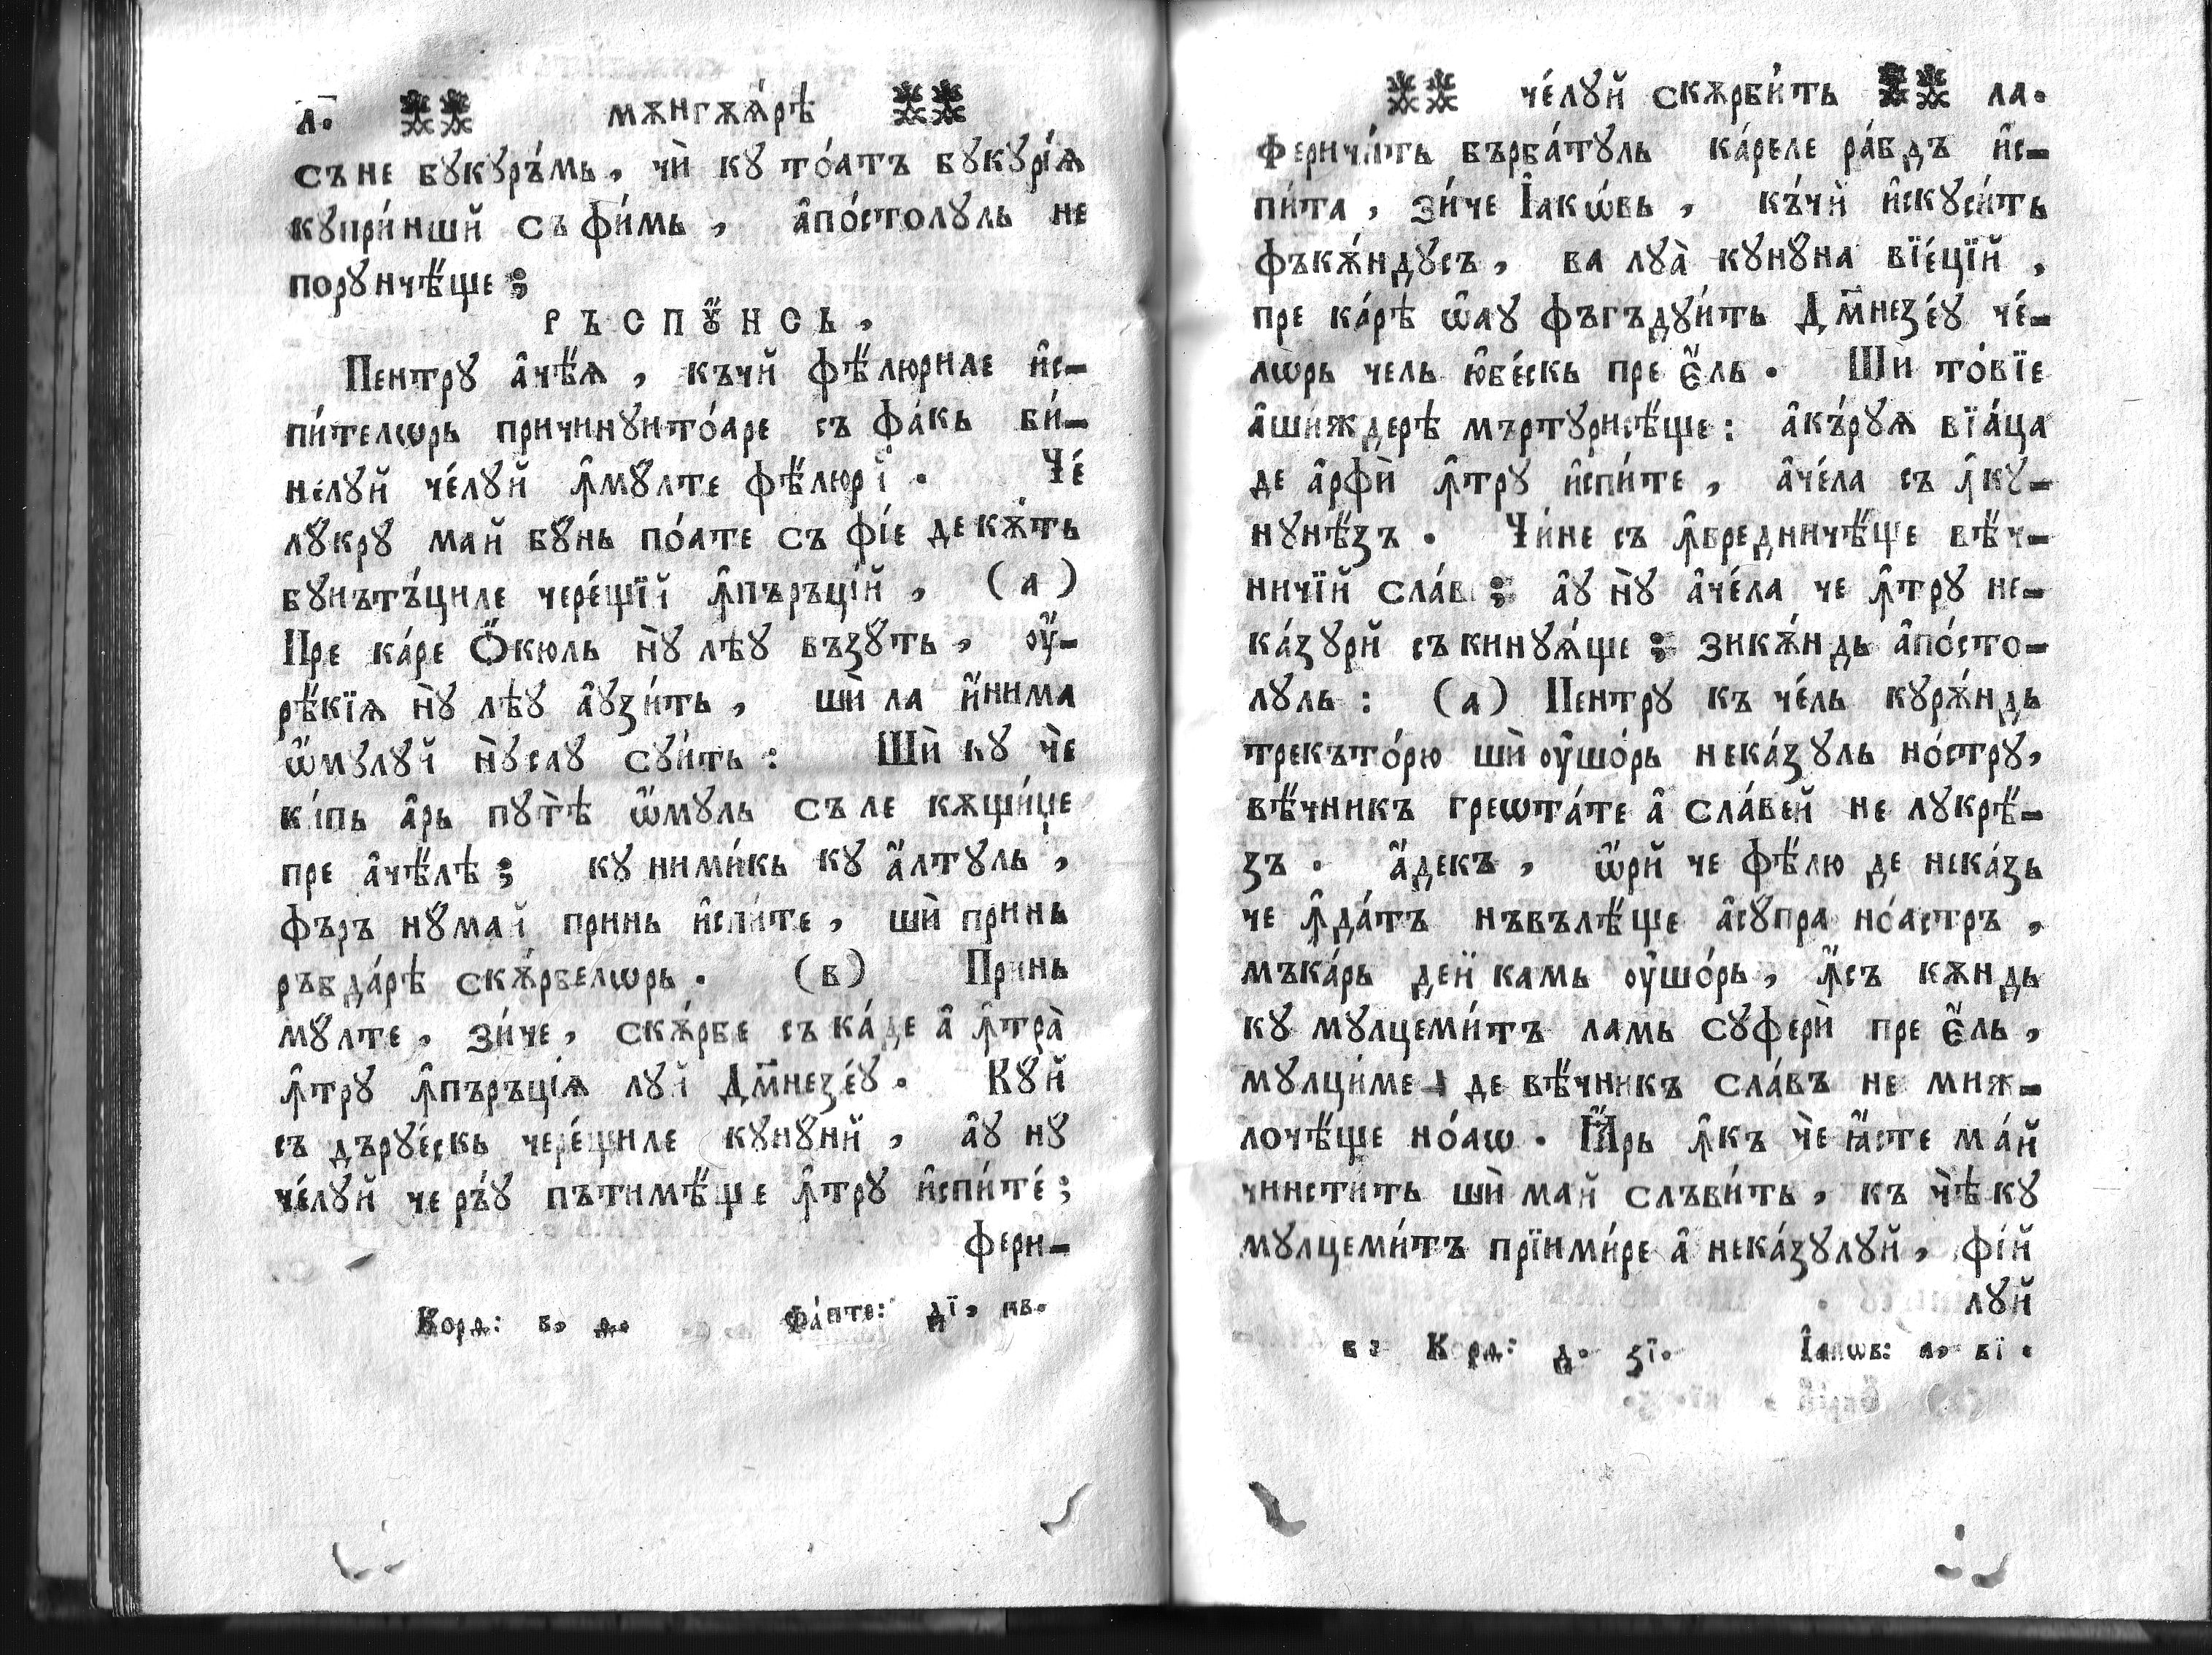 л҃. мѫнгѫꙗ́рѣ
съ не бꙋкꙋръ́мь, чѝ кꙋ то́атъ бꙋкꙋрі́ѧ
кꙋпри́ншй съ фи́мь, а҆по́столꙋль не
порꙋнчѣ́ще;
РЪСПꙊНСЬ,
Пентрꙋ а҆чѣ́ѧ, къчй фѣ́люриле и҆с-
пи́телѡрь причинꙋито́аре съ фа́кь би́-
нелꙋй че́лꙋй ꙟ҆мꙋ́лте фѣ́люрі. Че́
лꙋ́крꙋ май бꙋ́нь по́ате съ фі́е де кѫ́ть
бꙋнътъ́циле чере́щїй ꙟ҆пъръці́й, (а)
Пре ка́ре Ѻ҆́кюль нꙋ̀ лѣꙋ възꙋ́ть, оу҆-
рѣ́кїѧ нꙋ̀ лѣꙋ а҆ꙋзи́ть, шѝ ла и҆́нима
ѡ҆́мꙋлꙋй нꙋ̀саꙋ сꙋи́ть: Шѝ кꙋ чѐ
кі́пь а҆рь пꙋтѣ̀ ѡ҆́мꙋль съ ле кѫщи́це
пре а҆чѣ́лѣ; кꙋ ними́кь кꙋ а҆́лтꙋль,
фъръ нꙋ́май принь и҆спи́те, шѝ принь
ръбда́рѣ скѫ́рбелѡрь. (в) Принь
мꙋ́лте, зи́че, скѫ́рбе съ ка́де а҆ ꙟ҆тра̀
ꙟ҆трꙋ ꙟ҆пъръці́ѧ лꙋй Дм҃незе́ꙋ. Кꙋ́й
съ дърꙋе́скь чере́щиле кꙋнꙋ́нй, а҆ꙋ нꙋ́
че́лꙋй че ръ́ꙋ пътимѣ́ще ꙟ҆трꙋ и҆спи́те́;
фери-
Корд: в, д. дї, кв.
че́лꙋй скѫрби́ть ла.
ферича́ть бърба́тꙋль ка́реле ра́бдъ и҆с-
пи́та, зи́че І҆акѡ́вь, къ́чй и҆скꙋси́ть
фъкѫ́ндꙋсъ, ва лꙋа̀ кꙋнꙋ́на вїе́цїй,
пре ка́рѣ ѡ҆аꙋ фъгъдꙋи́ть Дм҃незе́ꙋ че́-
лѡрь чель ю҆бе́скь пре Є҆́ль. Ши то́вїе
а҆ши́ждерѣ мъртꙋрисѣ́ще: а҆къ́рꙋѧ вїа́ца
де а҆рфѝ ꙟ҆трꙋ и҆спи́те, а҆че́ла съ ꙟ҆кꙋ-
нꙋнѣ́зъ. Чи́не съ ꙟ҆вредничѣ́ще вѣч-
ничїй сла́в; а҆ꙋ нꙋ̀ а҆че́ла че ꙟ҆трꙋ не-
ка́зꙋрй съ кинꙋѧ́ще; зикѫ́ндь а҆по́сто-
лꙋль: (а) Пентрꙋ къ че́ль кꙋрѫ́ндь
трекъто́рю шѝ оу҆шо́рь нека́зꙋль но́стрꙋ,
вѣ́чникъ греѡта́те а҆ сла́вей не лꙋкрѣ́-
зъ. а҆́декъ, ѡ҆́рй че фѣ́лю де нека́зь
че ꙟ҆да́тъ нъвълѣ́ще а҆сꙋ́пра но́астръ,
мъка́рь дей камь оу҆шо́рь, ꙟ҆́съ кѫндь
кꙋ мꙋлцеми́тъ ламь сꙋферѝ пре Є҆́ль,
мꙋлци́ме де вѣ́чникъ сла́въ не миж-
лочѣ́ще но́аѡ. Ꙗ҆́рь ꙟ҆къ чѐ ꙗ҆́сте ма́й
чинстить шѝ май слъви́ть, къ чѣ̀ кꙋ
мꙋлцеми́тъ прїими́ре а҆ нека́зꙋлꙋй, фі́й
лꙋй
в: д. зї. І҆акѡв: а, вї.